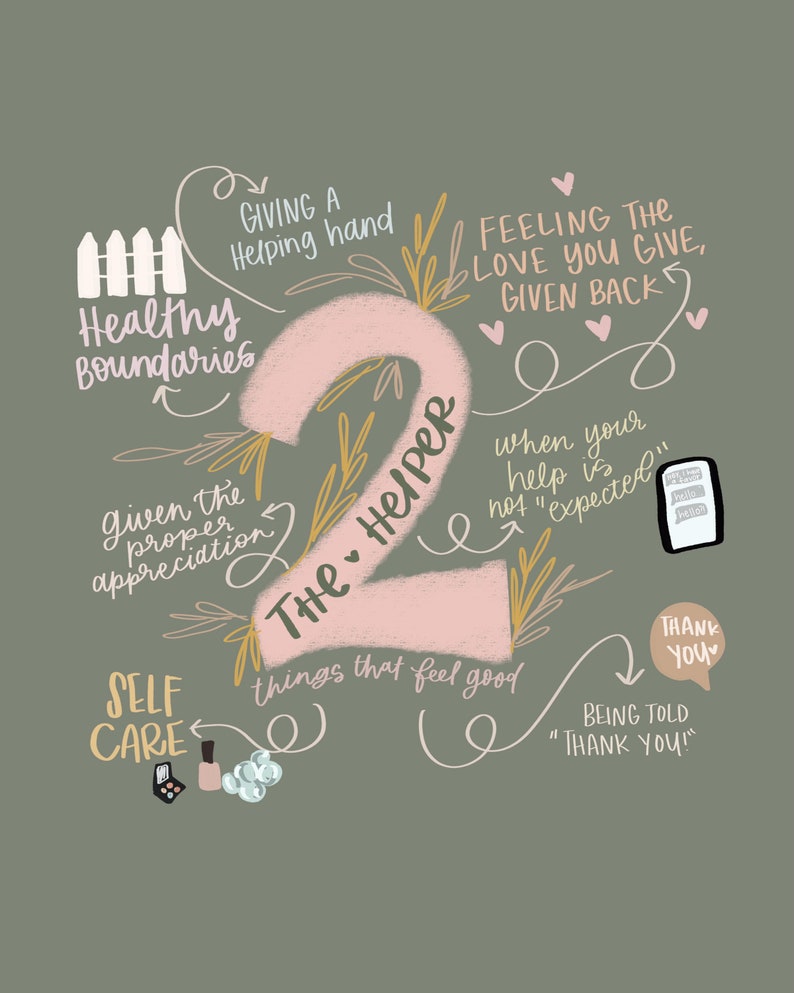 GIVING A
Helping hand
FEELING THE
LOVE YOU GIVE,
GIVEN BACK
Healthy
BOUNDARIES
2
THE HELPER
when your
help is
not "expected"
hello...
hello?!
given the
proper
appreciation
THANK
YOU
things that feel good
SELF
CARE
BEING TOLD
"THANK YOU!"